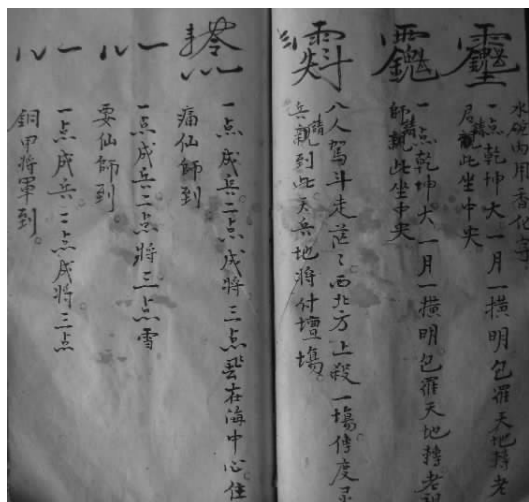 水碗用香化
一点乾坤大一月一橫明包羅天地轉老
君親此坐中央
一点乾坤大一月一橫明包羅天地轉老
師親此坐中央
八人駕斗走茫々西北方上殺一塲傳度
兵親到此天兵地將付壇塲。
一点成兵二点成將三点在海中心住
痛仙師到
一点成兵二点將三点雪
要仙師到。
一点成兵二点成將三点
銅甲將軍到。